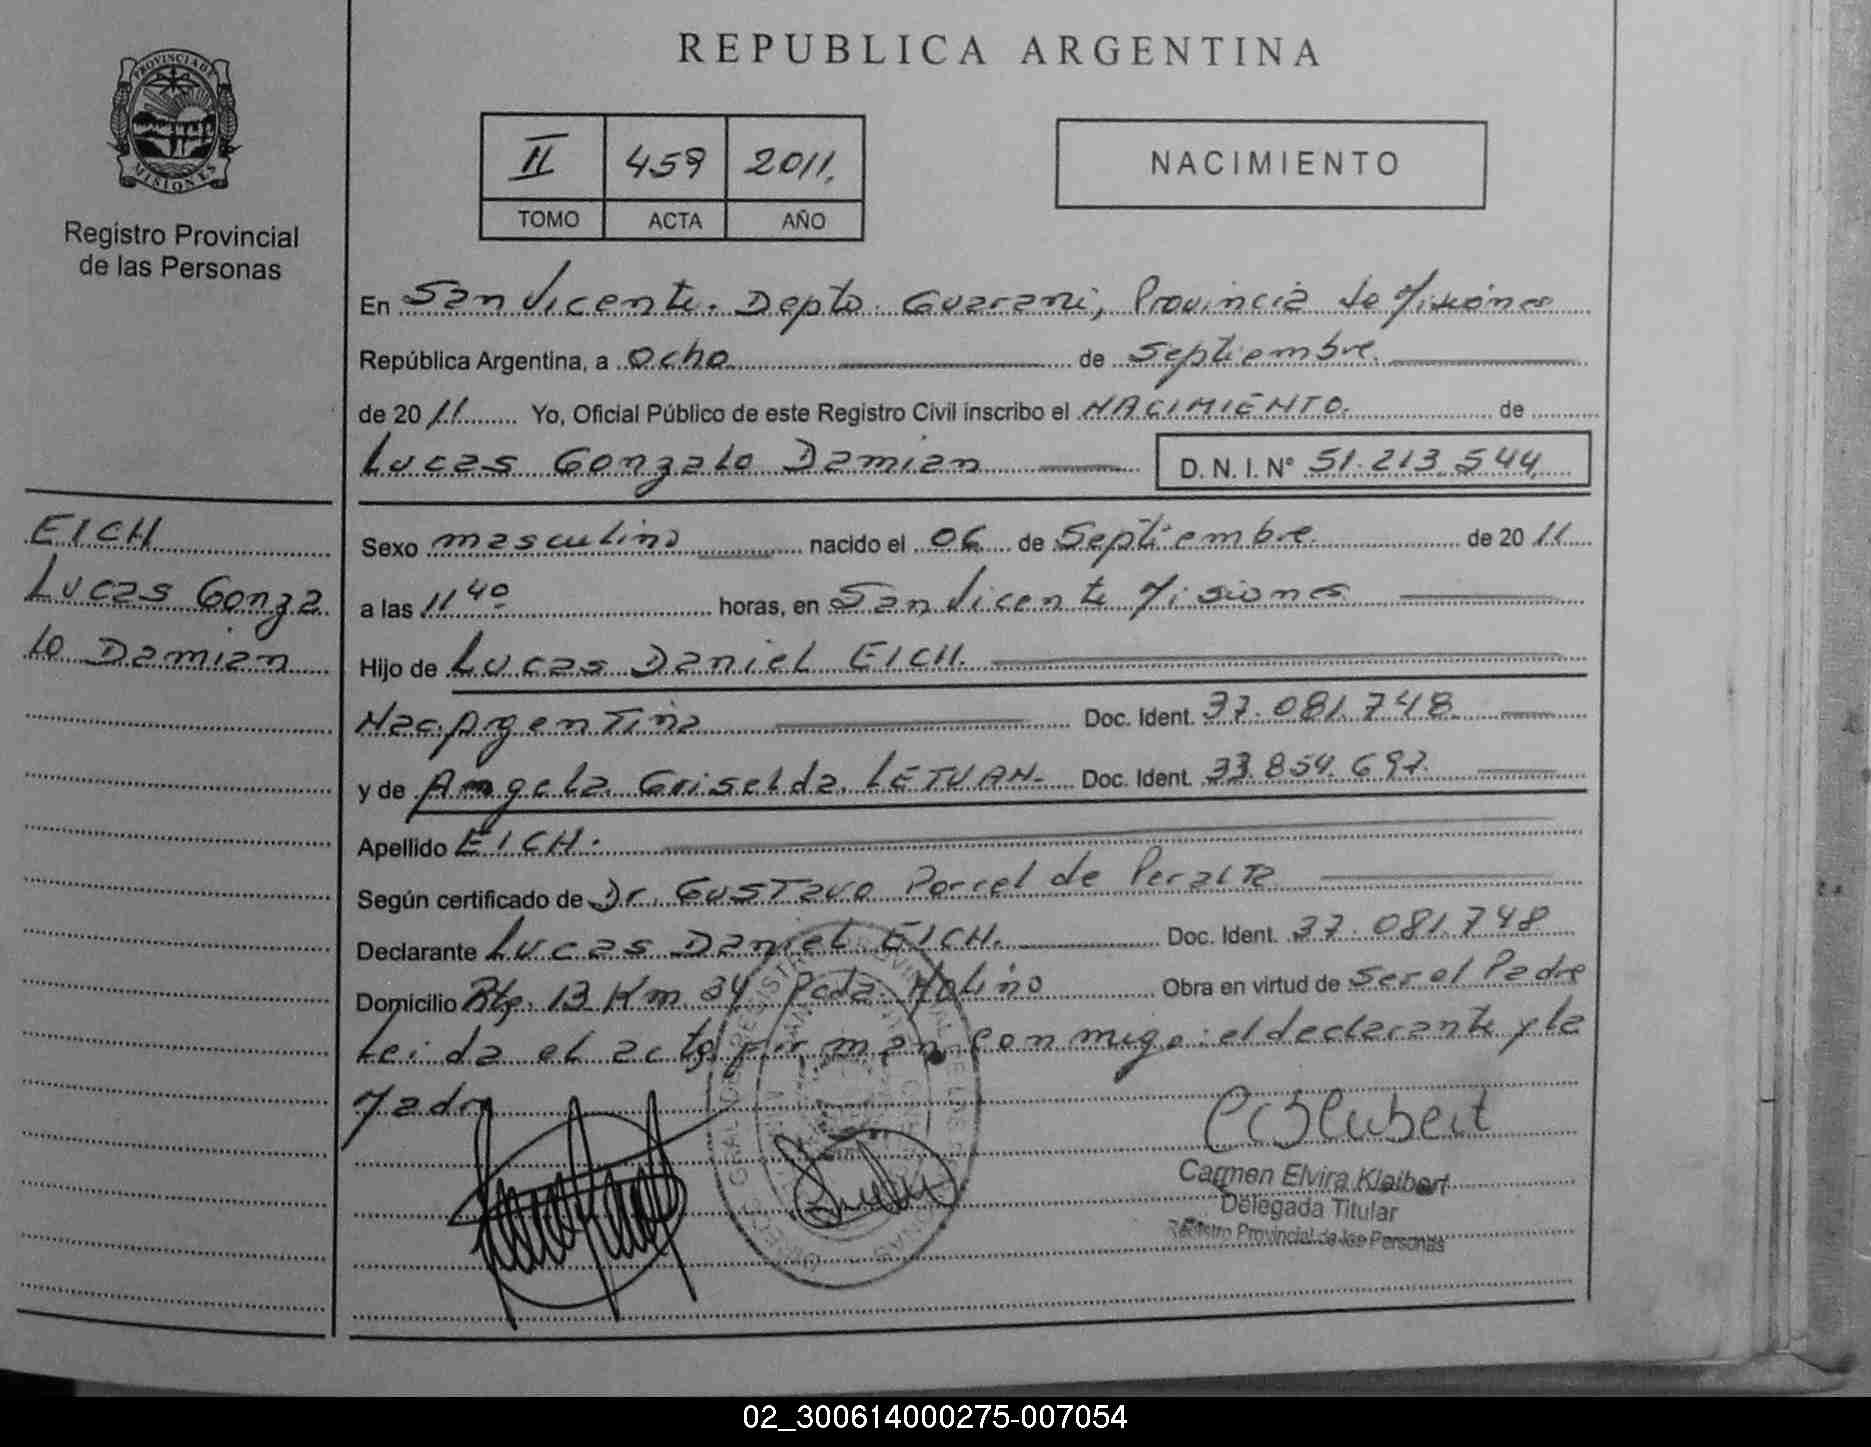 REPUBLICA ARGENTINA
PROVINCIA DE
MISIONES
Registro Provincial
de las Personas
II 459 2011.
TOMO ACTA AÑO
NACIMIENTO
En San Vicente. Depto. Guarani, Provincia de Misiones
República Argentina, a ocho de Septiembre.
de 2011 Yo, Oficial Público de este Registro Civil inscribo el NACIMIENTO. de
Lucas Gonzalo Damian D. N. I. N° 51.213.544
EICH
Lucas Gonza
lo Damian
Sexo masculino nacido el 06 de Septiembre de 2011
a las 11 40 horas, en San Vicente Misiones
Hijo de Lucas Daniel EICH.
Nac. Argentina Doc. Ident. 37.081.748
y de Angela Griselda LETUAN. Doc. Ident. 33.854.697
Apellido EICH.
Según certificado de Dr. Gustavo Porcel de Peralta
Declarante Lucas Daniel EICH. Doc. Ident. 37.081.748
Domicilio Rta. 13 Km 34 Pcda. Molino Obra en virtud de Ser el Padre
Leida el acta firman conmigo: el declarante y la
Madre
Carmen Elvira Klaibert
Delegada Titular
Registro Provincial de las Personas
02_300614000275-007054